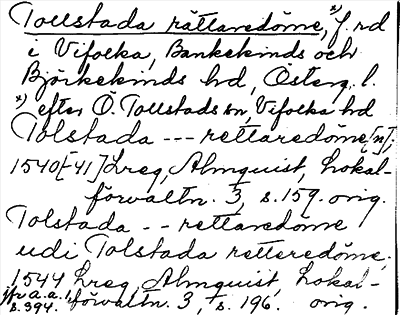 Tollstada rättaredöme, x) f. rd
i Vifolka, Bankekinds och
Björkekinds hd, Österg. l.
x) efter Ö. Tollstads sn, Vifolka hd
Tolstada --- rettaredøme[n];
1540[-41] Lreg, Almquist, Lokal-
förvaltn. 3, s. 159. orig.
Tolstada -- rettaredome
udi Tolstada retteredöme,
1544 Lreg, Almquist, Lokal-
jfr a.a. 1, förvaltn. 3, s. 196. orig.
s. 394.